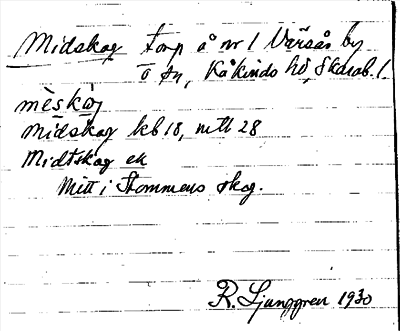 Midskog torp å nr 1 Värsås by
ö sn, Kåkinds hd, Skarab. l.
mèskog
Midskog kb 18, mtl 28
Midtskog ek
Mitt i Stommens skog.
R. Ljunggren 1930